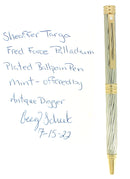 Sheaffer Targa
Fred Force Palladium
Plated Ballpoin Pen
Mint - offered by
Antique Digger
7-15-22